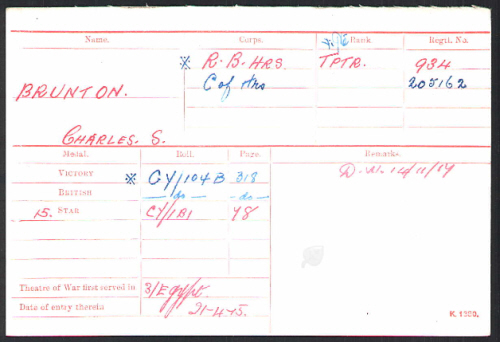 Name. Corps. Rank. Regtl. No.
※ R. B. HRS. TPTR. 934
BRUNTON. C of Hrs 205162
CHARLES. S.
Medal. Roll. Page. Remarks.
VICTORY ※ CY/104B 318 D. W. 14/11/17
BRITISH — do — — do —
15. STAR CY/1B1 78
Theatre of War first served in 3/Egypt.
Date of entry therein 21-4-15.
K. 1380.